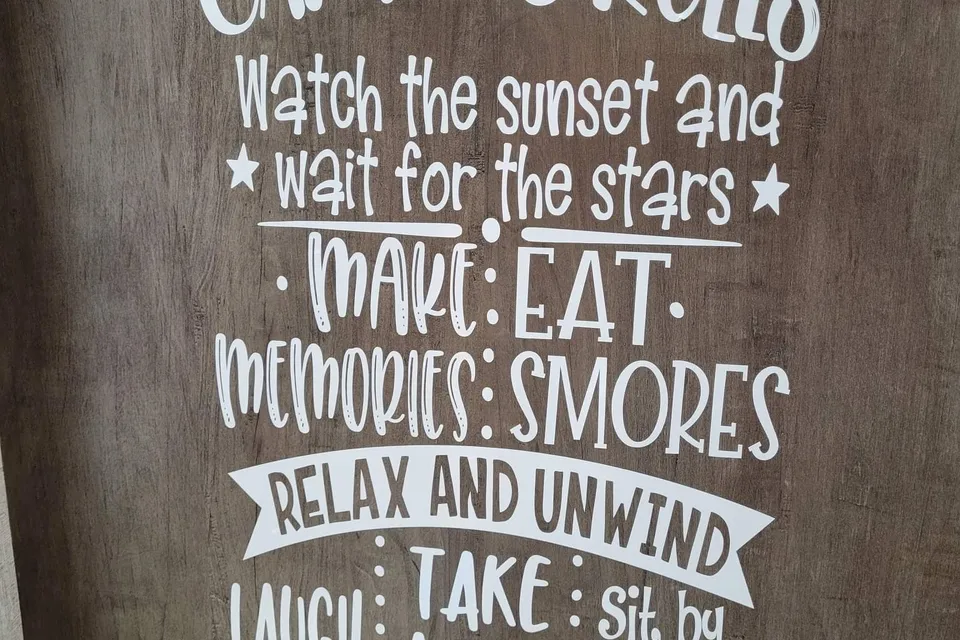 Watch the sunset and
wait for the stars
MAKE EAT
MEMORIES SMORES
RELAX AND UNWIND
TAKE sit by
LAUGH